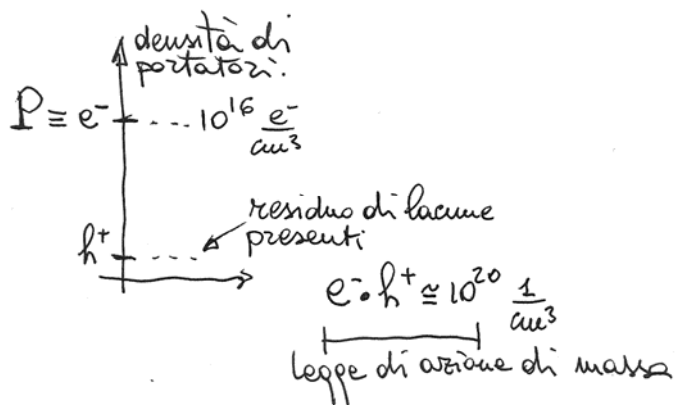 densità di
portatori.
P ≡ e⁻ 10¹⁶ e⁻/cm³
residuo di lacune
presenti
h⁺
e⁻ • h⁺ ≅ 10²⁰ 1/cm³
legge di azione di massa